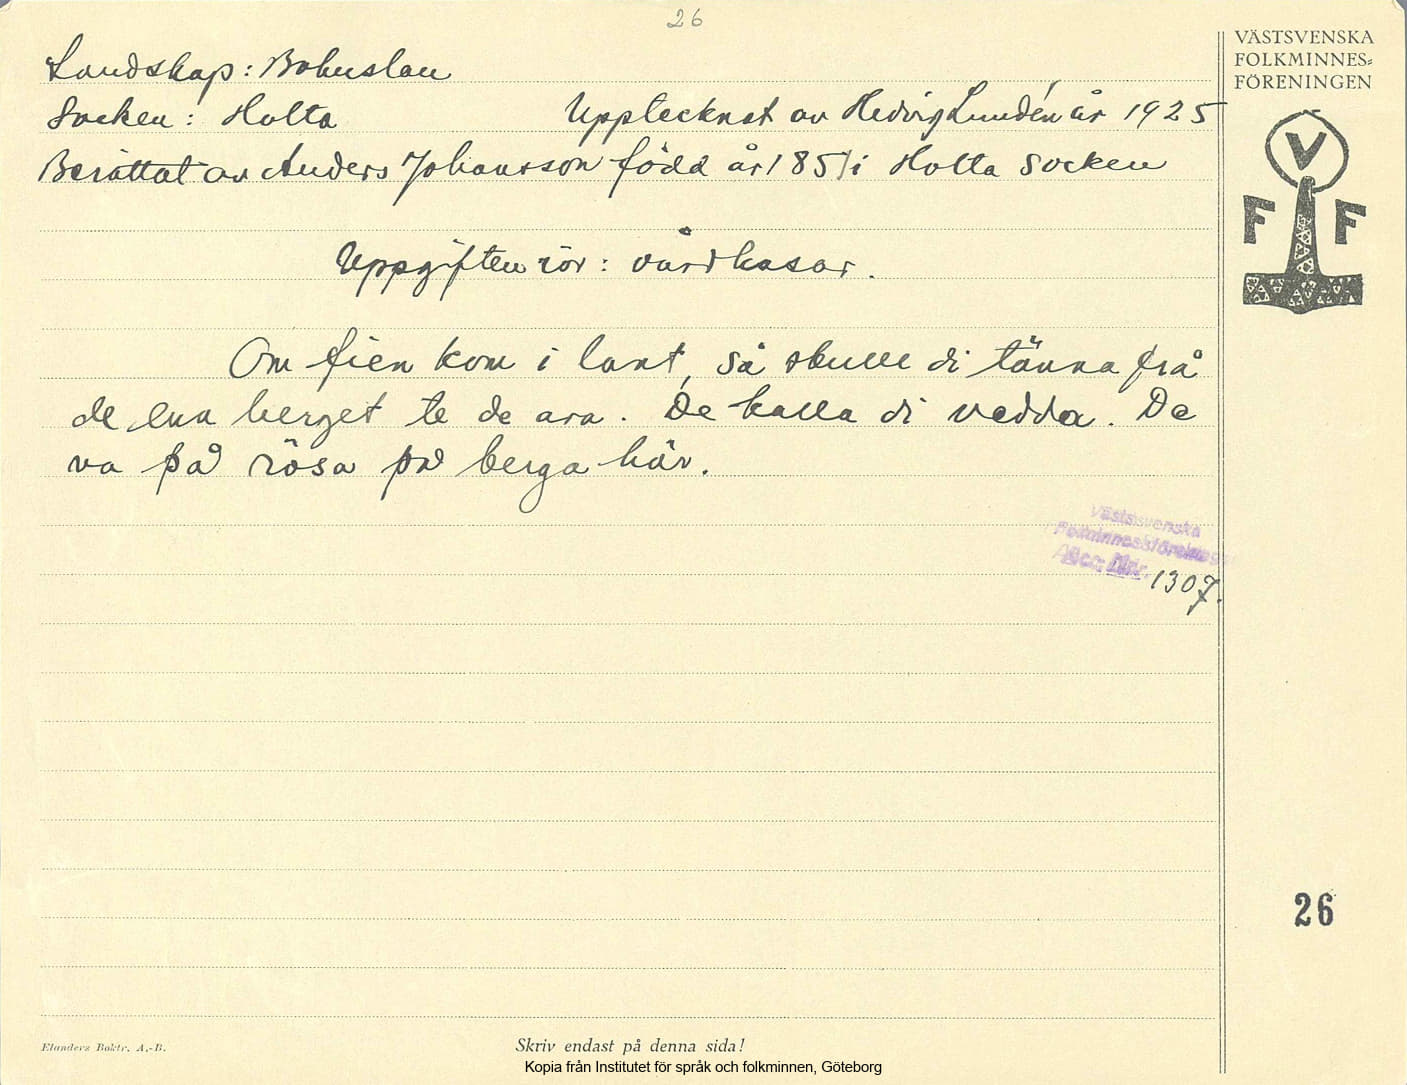 26
Landskap: Bohuslän
VÄSTSVENSKA
FOLKMINNES-
FÖRENINGEN
Socken: Holta Upptecknat av Hedvig Lundén år 1925
Berättat av Anders Johansson född år 1851 i Holta socken
V
F F
Uppgiften rör: vårdkasar.
Om fien kom i lant, så skulle di tänna frå
de ena berget te de ara. De kalla di vedda. De
va på rösa på berga här.
Västsvenska
Folkminnesföreningen
Acc. Nr. 1307.
26
Elanders Boktr. A.-B.
Skriv endast på denna sida!
Kopia från Institutet för språk och folkminnen, Göteborg